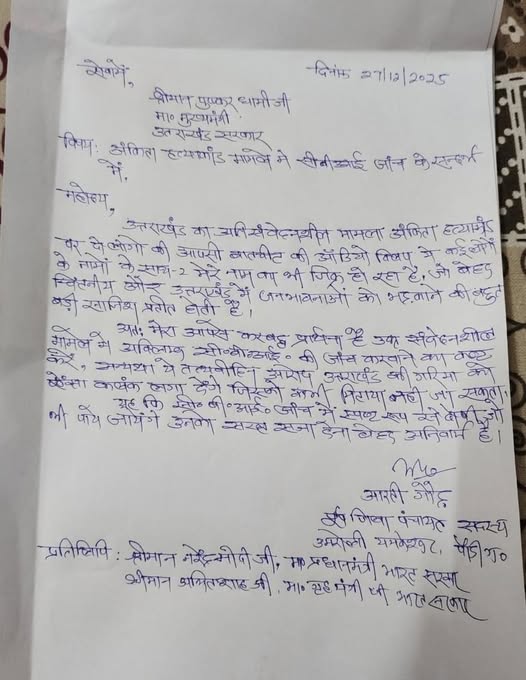 सेवा में,
दिनांक 27/12/2025
श्रीमान पुष्कर धामी जी
मा० मुख्यमंत्री
उत्तराखंड सरकार
विषय: अंकिता हत्याकांड मामले में सीबीआई जांच के सन्दर्भ
में,
महोदय,
उत्तराखंड का अति संवेदनशील मामला अंकिता हत्याकांड
पर दो लोगों की आपसी बातचीत की ऑडियो क्लिप में कई लोगों
के नामों के साथ-2 मेरे नाम का भी जिक्र हो रहा है, जो बेहद
चिंतनीय और उत्तराखंड में जनभावनाओं को भड़काने की बहुत
बड़ी साजिश प्रतीत होती है।
अतः मेरा आपसे करबद्ध प्रार्थना है उक्त संवेदनशील
मामले में अविलम्ब सी०बी०आई० की जांच करवाने का कष्ट
करें, अन्यथा ये तथाकथित उत्तराखंड की गरिमा को
ऐसा कलंक लगा देंगे जिसको कभी मिटाया नहीं जा सकता।
यह कि सी०बी०आई० जांच में स्पष्ट रूप से दोषी जो
भी पाये जायेंगे उनको सख्त सजा देना बेहद अनिवार्य है।
आरती गौड़
जिला पंचायत सदस्य
यमकेश्वर, पौड़ी ग०
प्रतिलिपि: श्रीमान नरेन्द्र मोदी जी, मा० प्रधानमंत्री भारत सरकार
श्रीमान अमित शाह जी, मा० गृह मंत्री जी भारत सरकार